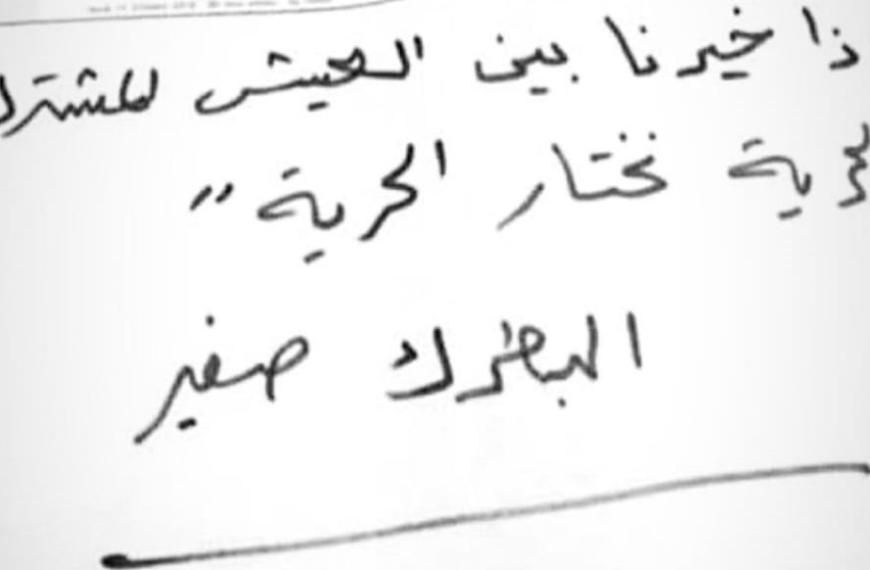 ذا خيرنا بين العيش المشترك
لحرية نختار الحرية"
البطرك صفير